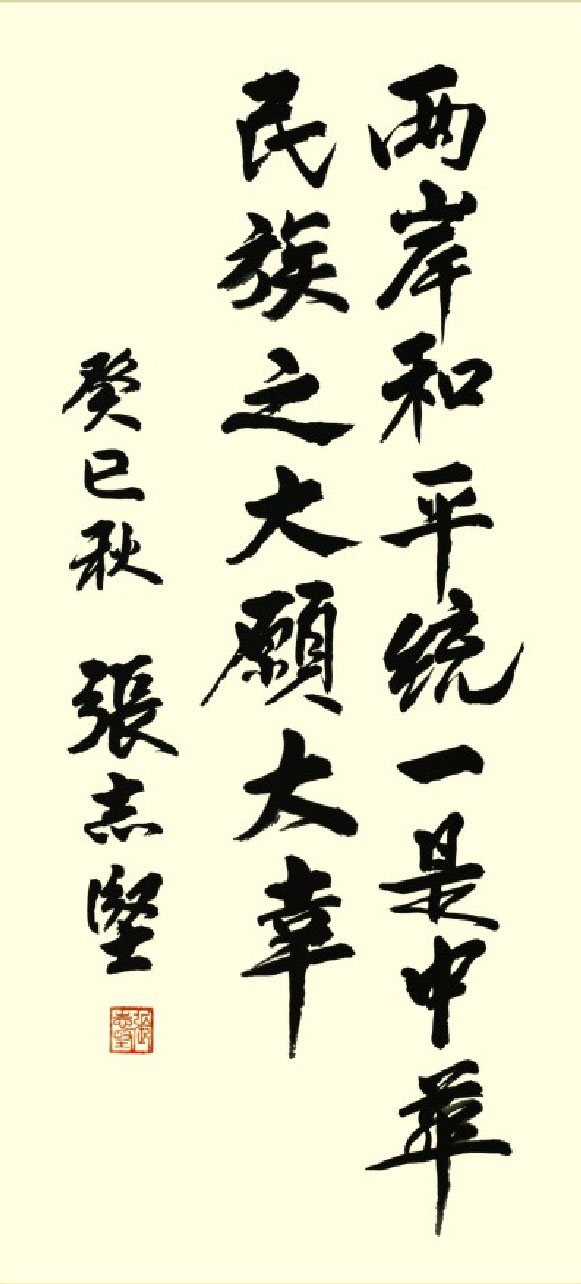 两岸和平統一是中華
民族之大願大幸
癸巳秋 張志堅